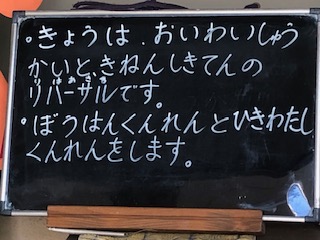 ・きょうは、おいわいしゅう
かいと、きねんしきてんの
リバーサルです。
・ぼうはんくんれんとひきわたし
くんれんをします。